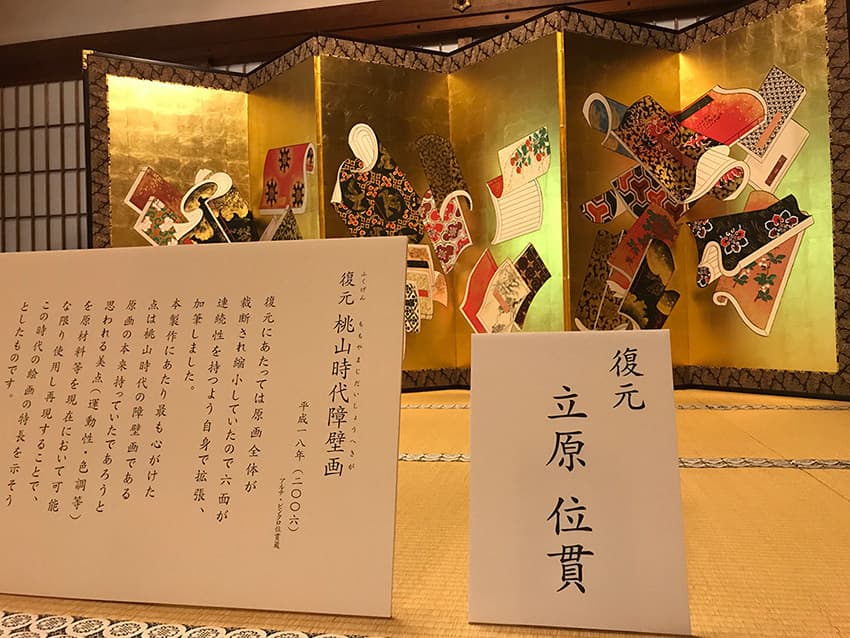 復元 桃山時代障壁画
ふくげん ももやまじだいしょうへきが
平成一八年（二〇〇六）
アルテ・ピンクロ位貫蔵
復元にあたっては原画全体が
裁断され縮小していたので六面が
連続性を持つよう自身で拡張、
加筆しました。
本製作にあたり最も心がけた
点は桃山時代の障壁画である
原画の本来持っていたであろうと
思われる美点（運動性・色調等）
を原材料等を現在において可能
な限り使用し再現することで、
この時代の絵画の特長を示そう
としたものです。
復元
立原 位貫